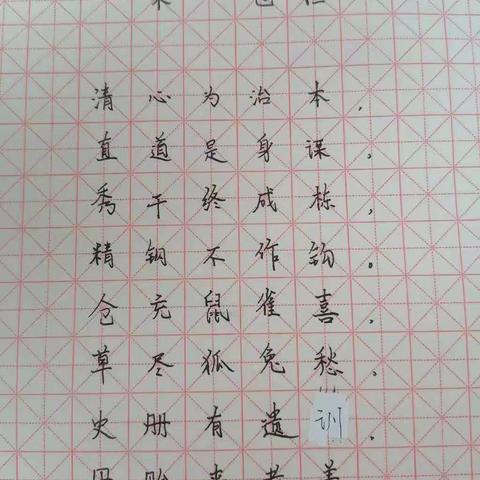 清心为治本，
直道是身谋。
秀干终成栋，
精钢不作钩。
仓充鼠雀喜，
草尽狐兔愁。
史册有遗训，